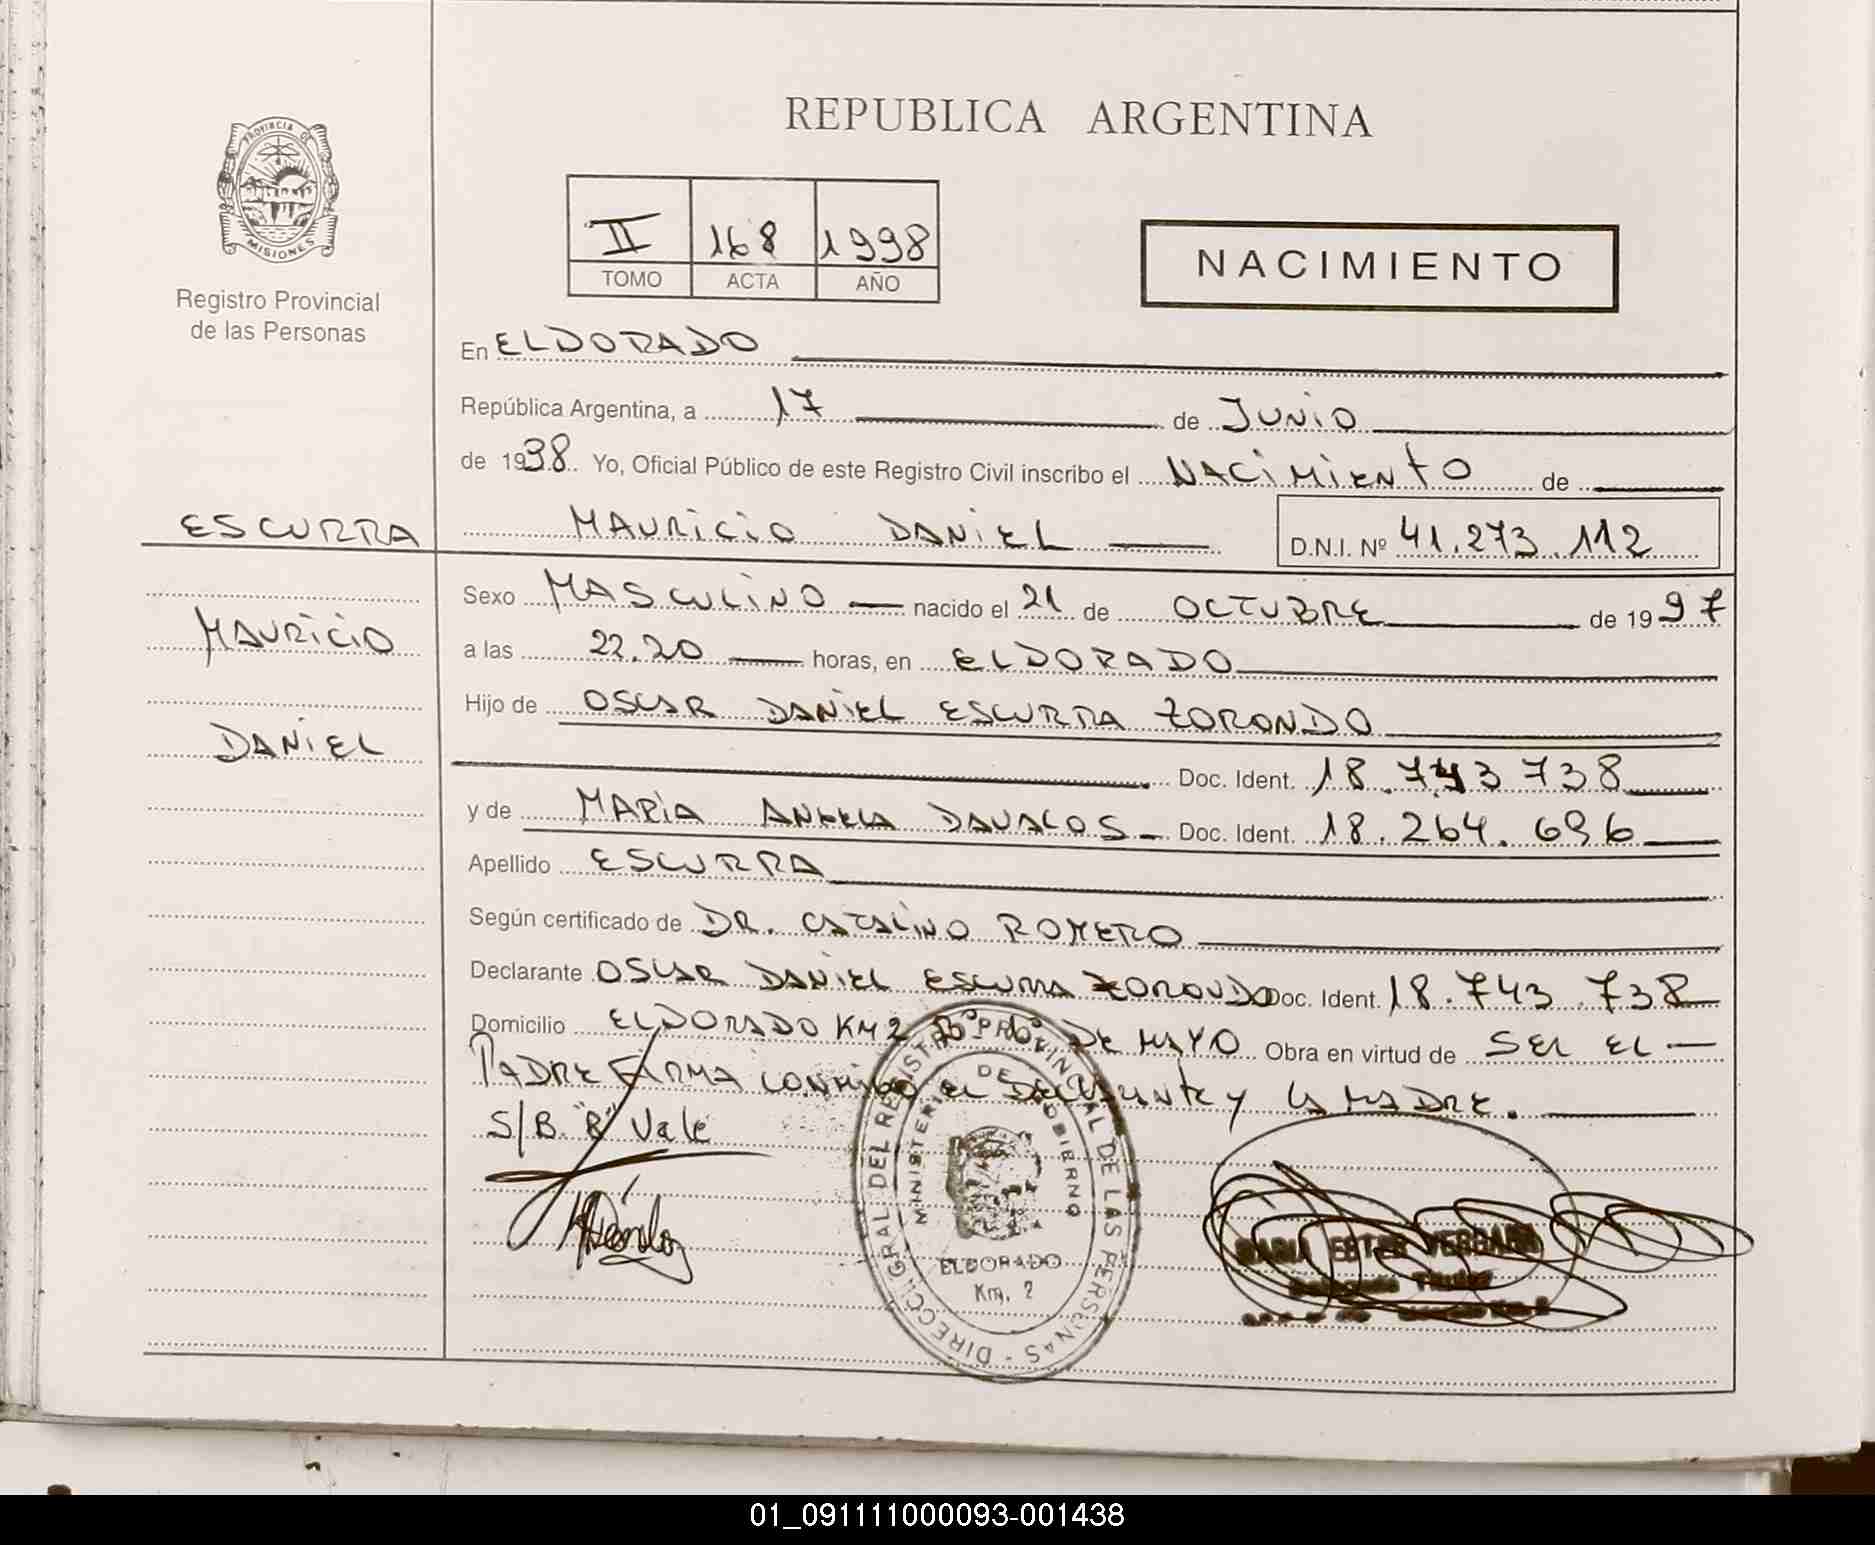 REPUBLICA ARGENTINA
PROVINCIA DE
MISIONES
Registro Provincial
de las Personas
II 168 1998
TOMO ACTA AÑO
NACIMIENTO
En ELDORADO
República Argentina, a 17 de JUNIO
de 1998. Yo, Oficial Público de este Registro Civil inscribo el NACIMIENTO de
ESCURRA
MAURICIO DANIEL D.N.I. Nº 41.273.112
Sexo MASCULINO nacido el 21 de OCTUBRE de 1997
MAURICIO
a las 22.20 horas, en ELDORADO
Hijo de OSCAR DANIEL ESCURRA ZORONDO
DANIEL
Doc. Ident. 18.743 738
y de MARIA ANGELA DAVALOS Doc. Ident. 18.264.696
Apellido ESCURRA
Según certificado de DR. CATALINO ROMERO
Declarante OSCAR DANIEL ESCURRA ZORONDO Doc. Ident. 18.743.738
Domicilio ELDORADO KM 2 Bº 1º DE MAYO Obra en virtud de SER EL
PADRE FIRMA CONMIGO EL DECLARANTE Y LA MADRE.
S/B. "R" Vale
DIRECC. GRAL DEL REGISTRO PROVINCIAL DE LAS PERSONAS
MINISTERIO DE GOBIERNO
ELDORADO
Km. 2
MARIA ESTER VERGARA
Delegada Titular
01_091111000093-001438